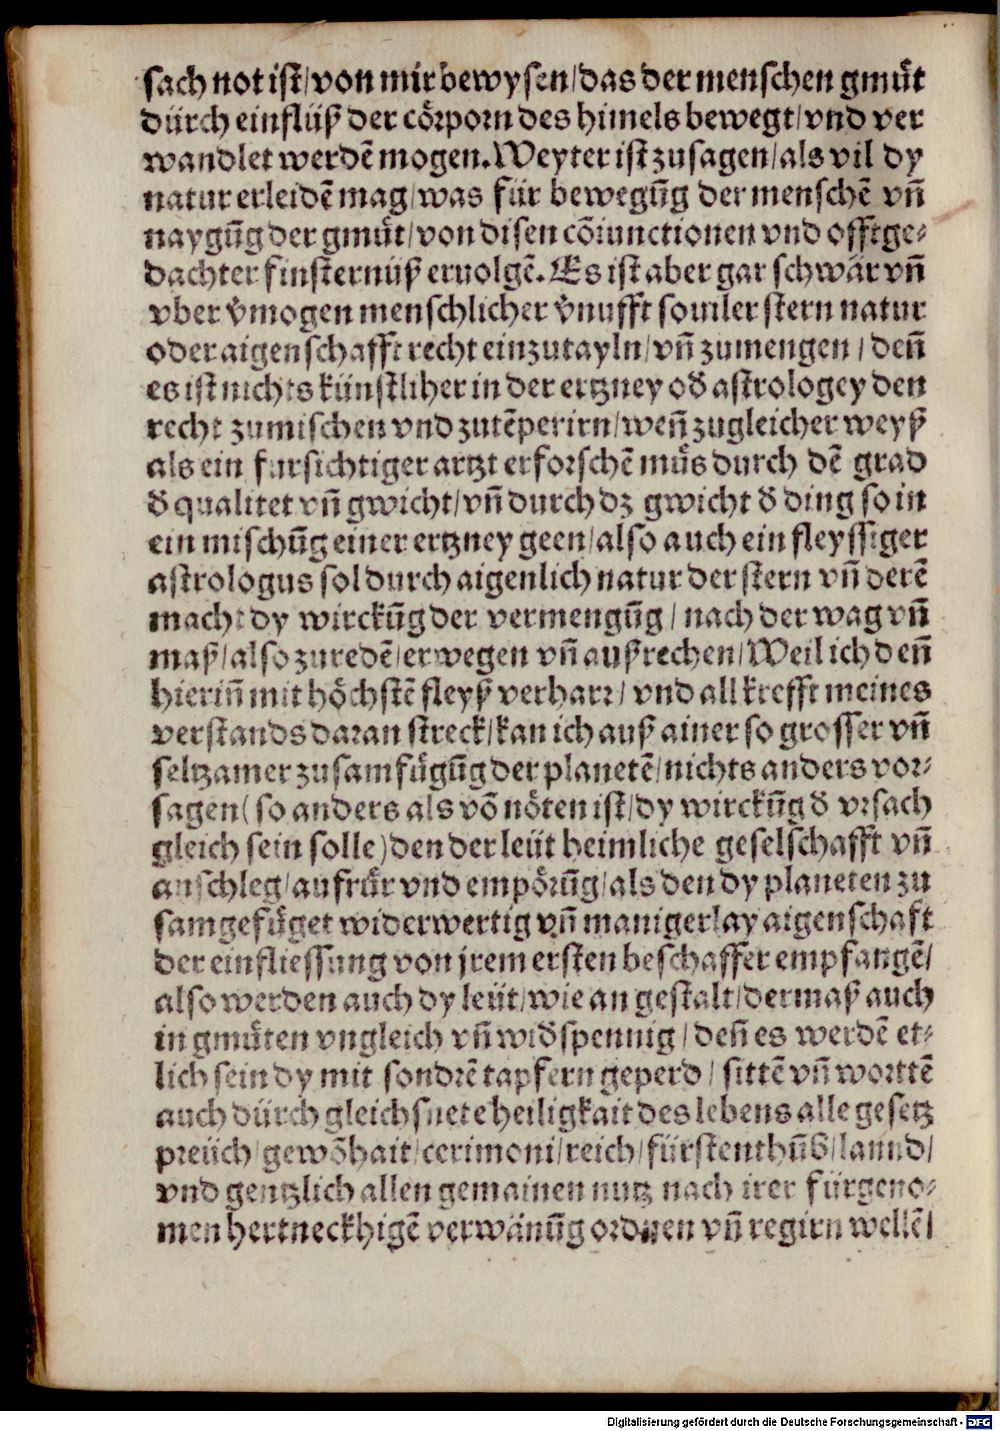 sach not ist/von mir bewysen/das der menschen gmüt
dürch einflüß der cörporn des himels bewegt/vnd ver
wandlet werdē mogen. Weyter ist zu sagen/als vil dy
natur erleidē mag/was für bewegūg der menschē vn̄
naygūg der gmüt/von disen cōiunctionen vnd offt ge⸗
dachter finsternüß eruolgē. Es ist aber gar schwär vn̄
vber v̄mogen menschlicher v̄nufft souiler stern natur
oder aigenschafft recht einzutayln/vn̄ zumengen/den̄
es ist nichts künstliher in der ertzney od̄ astrologey den
recht zumischen vnd zutēperirn/wen̄ zugleicher weyß
als ein fursichtiger artzt erforschē müs durch dē grad
d̄ qualitet vn̄ gwicht/vn̄ durch dz gwicht d̄ ding so in
ein mischūg einer ertzney geen/also auch ein fleyssiger
astrologus sol durch aigenlich natur der stern vn̄ derē
macht dy wirckūg der vermengūg/nach der wag vn̄
maß/also zuredē/erwegen vn̄ außrechen/Weil ich den̄
hierin̄ mit höchstē fleyß verharr/vnd all krefft meines
verstands daran streck/kan ich auß ainer so grosser vn̄
seltzamer zusamfügūg der planetē/nichts anders vor⸗
sagen(so anders als vō nöten ist/dy wirckūg d̄ vrsach
gleich sein solle)den der leüt heimliche geselschafft vn̄
anschleg/aufrür vnd empörūg/als den dy planeten zu
samgefüget widerwertig vn̄ manigerlay aigenschaft
der einfliessung von jrem ersten beschaffer empfangē/
also werden auch dy leüt/wie an gestalt/dermaß auch
in gmüten vngleich vn̄ wid̄spennig/den̄ es werdē et⸗
lich sein dy mit sondrē tapfern geperd/sittē vn̄ worttē
auch dürch gleichsnete heiligkait des lebens alle gesetz
preüch/gewōhait/cerimoni/reich/fürstenthūb/lannd/
vnd gentzlich allen gemainen nutz nach irer fürgeno⸗
men hertneckhigē verwänūg ordnen vn̄ regirn wellē/
Digitalisierung gefördert durch die Deutsche Forschungsgemeinschaft - DFG